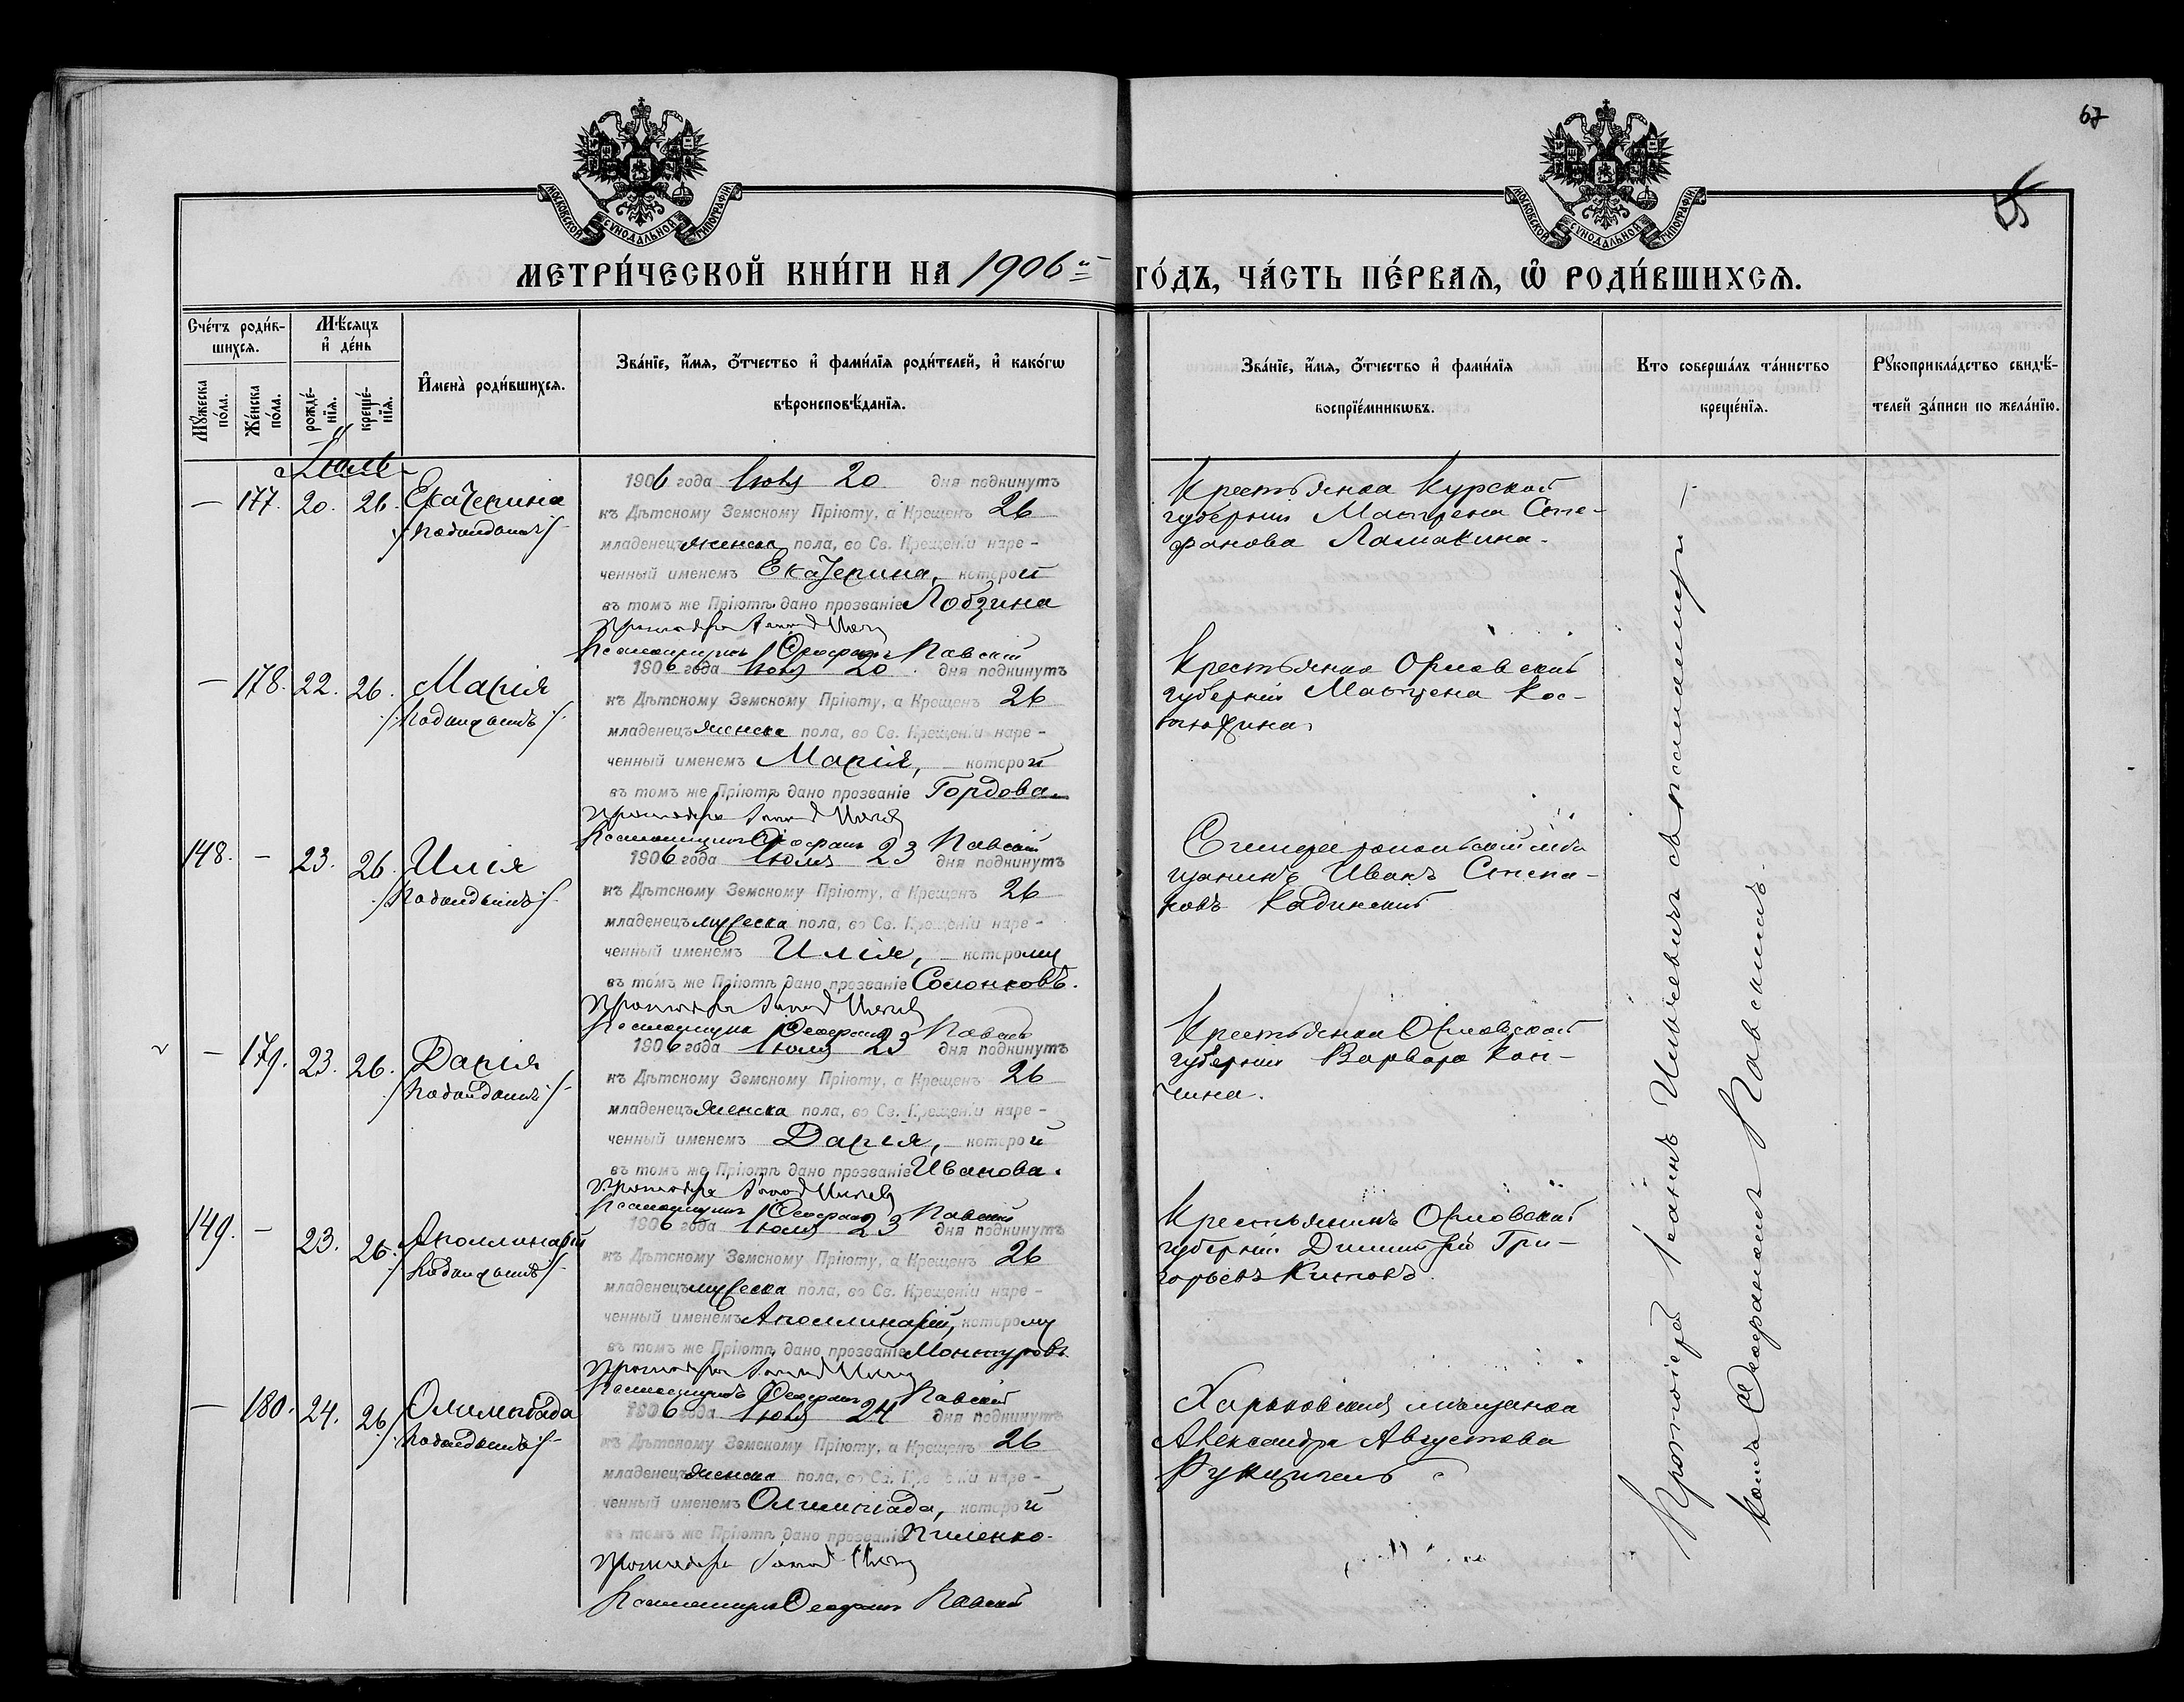 67
МОСКОВСКОЙ СѴНОДАЛЬНОЙ ТИПОГРАФІИ
МОСКОВСКОЙ СѴНОДАЛЬНОЙ ТИПОГРАФІИ
МЕТРИ́ЧЕСКОЙ КНИ́ГИ НА 1906 й ГО́ДЪ, ЧА́СТЬ ПЕ́РВАѦ, Ѡ҆ РОДИ́ВШИХСѦ.
Сче́тъ роди́в-
шихсѧ.
Мꙋ́жеска
по́ла.
Же́нска
по́ла.
Мѣ́сѧцъ
и҆ де́нь
рожде́-
нїѧ.
креще́-
нїѧ.
И҆мена̀ роди́вшихсѧ.
Зва́нїе, и҆́мѧ, ѻ҆́тчество и҆ фами́лїѧ роди́телей, и҆ како́гѡ
вѣроисповѣ́данїѧ.
Зва́нїе, и҆́мѧ, ѻ҆́тчество и҆ фами́лїѧ
воспрїе́мникѡвъ.
Кто соверша́лъ та́инство
креще́нїѧ.
Рꙋкоприкла́дство свидѣ́-
телей за́писи по жела́нїю.
Іюль
— 177. 20. 26. Екатерина
/подкидышъ/
1906 года Іюля 20 дня подкинутъ
къ Дѣтскому Земскому Пріюту, а Крещенъ 26
младенецъ женска пола, во Св. Крещеніи наре-
ченный именемъ Екатерина, которой
въ томъ же Пріютѣ дано прозваніе Лобзина
Псаломщикъ Ѳеофанъ Павскій
Крестьянка Курской
губерніи Матрена Сте-
фанова Ламакина.
— 178. 22. 26. Марія
/подкидышъ/
1906 года Іюля 20 дня подкинутъ
къ Дѣтскому Земскому Пріюту, а Крещенъ 26
младенецъ женска пола, во Св. Крещеніи наре-
ченный именемъ Марія, которой
въ томъ же Пріютѣ дано прозваніе Гордова.
Псаломщикъ Ѳеофанъ Павскій
Крестьянка Орловской
губерніи Матрена Кос-
тюхина.
148. — 23. 26. Илія
/подкидышъ/
1906 года Іюля 23 дня подкинутъ
къ Дѣтскому Земскому Пріюту, а Крещенъ 26
младенецъ мужеска пола, во Св. Крещеніи наре-
ченный именемъ Илія, которому
въ томъ же Пріютѣ дано прозваніе Солонковъ.
Псаломщикъ Ѳеофанъ Павскій
Симферопольскій мѣ
щанинъ Иванъ Степа-
новъ Кадинскій
— 179. 23. 26. Дарія
/подкидышъ/
1906 года Іюля 23 дня подкинутъ
къ Дѣтскому Земскому Пріюту, а Крещенъ 26
младенецъ женска пола, во Св. Крещеніи наре-
ченный именемъ Дарія, которой
въ томъ же Пріютѣ дано прозваніе Иванова.
Псаломщикъ Ѳеофанъ Павскій
Крестьянка Орловской
губерніи Варвара Кон-
чина.
149. — 23. 26. Аполлинарій
/подкидышъ/
1906 года Іюля 23 дня подкинутъ
къ Дѣтскому Земскому Пріюту, а Крещенъ 26
младенецъ мужеска пола, во Св. Крещеніи наре-
ченный именемъ Аполлинарій, которому
въ томъ же Пріютѣ дано прозваніе Монтуровъ.
Псаломщикъ Ѳеофанъ Павскій
Крестьянинъ Орловской
губерніи Димитрій Гри-
горьевъ Китовъ.
— 180. 24. 26. Олимпіада
/подкидышъ/
1906 года Іюля 24 дня подкинутъ
къ Дѣтскому Земскому Пріюту, а Крещенъ 26
младенецъ женска пола, во Св. Крещеніи наре-
ченный именемъ Олимпіада, которой
въ томъ же Пріютѣ дано прозваніе Пиленко.
Псаломщикъ Ѳеофанъ Павскій
Харьковская мѣщанка
Александра Августова
Протоіерей Іоаннъ съ псаломщи-
комъ Ѳеофаномъ Павскимъ.